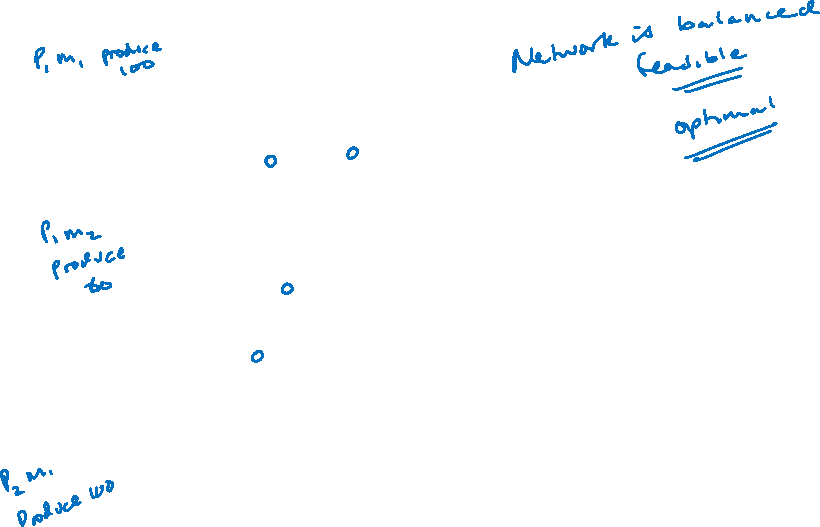 P₁ m₁ produce
100
Network is balanced
feasible
optimal
P₁ m₂
produce
60
P₂ m₁
Produce 100